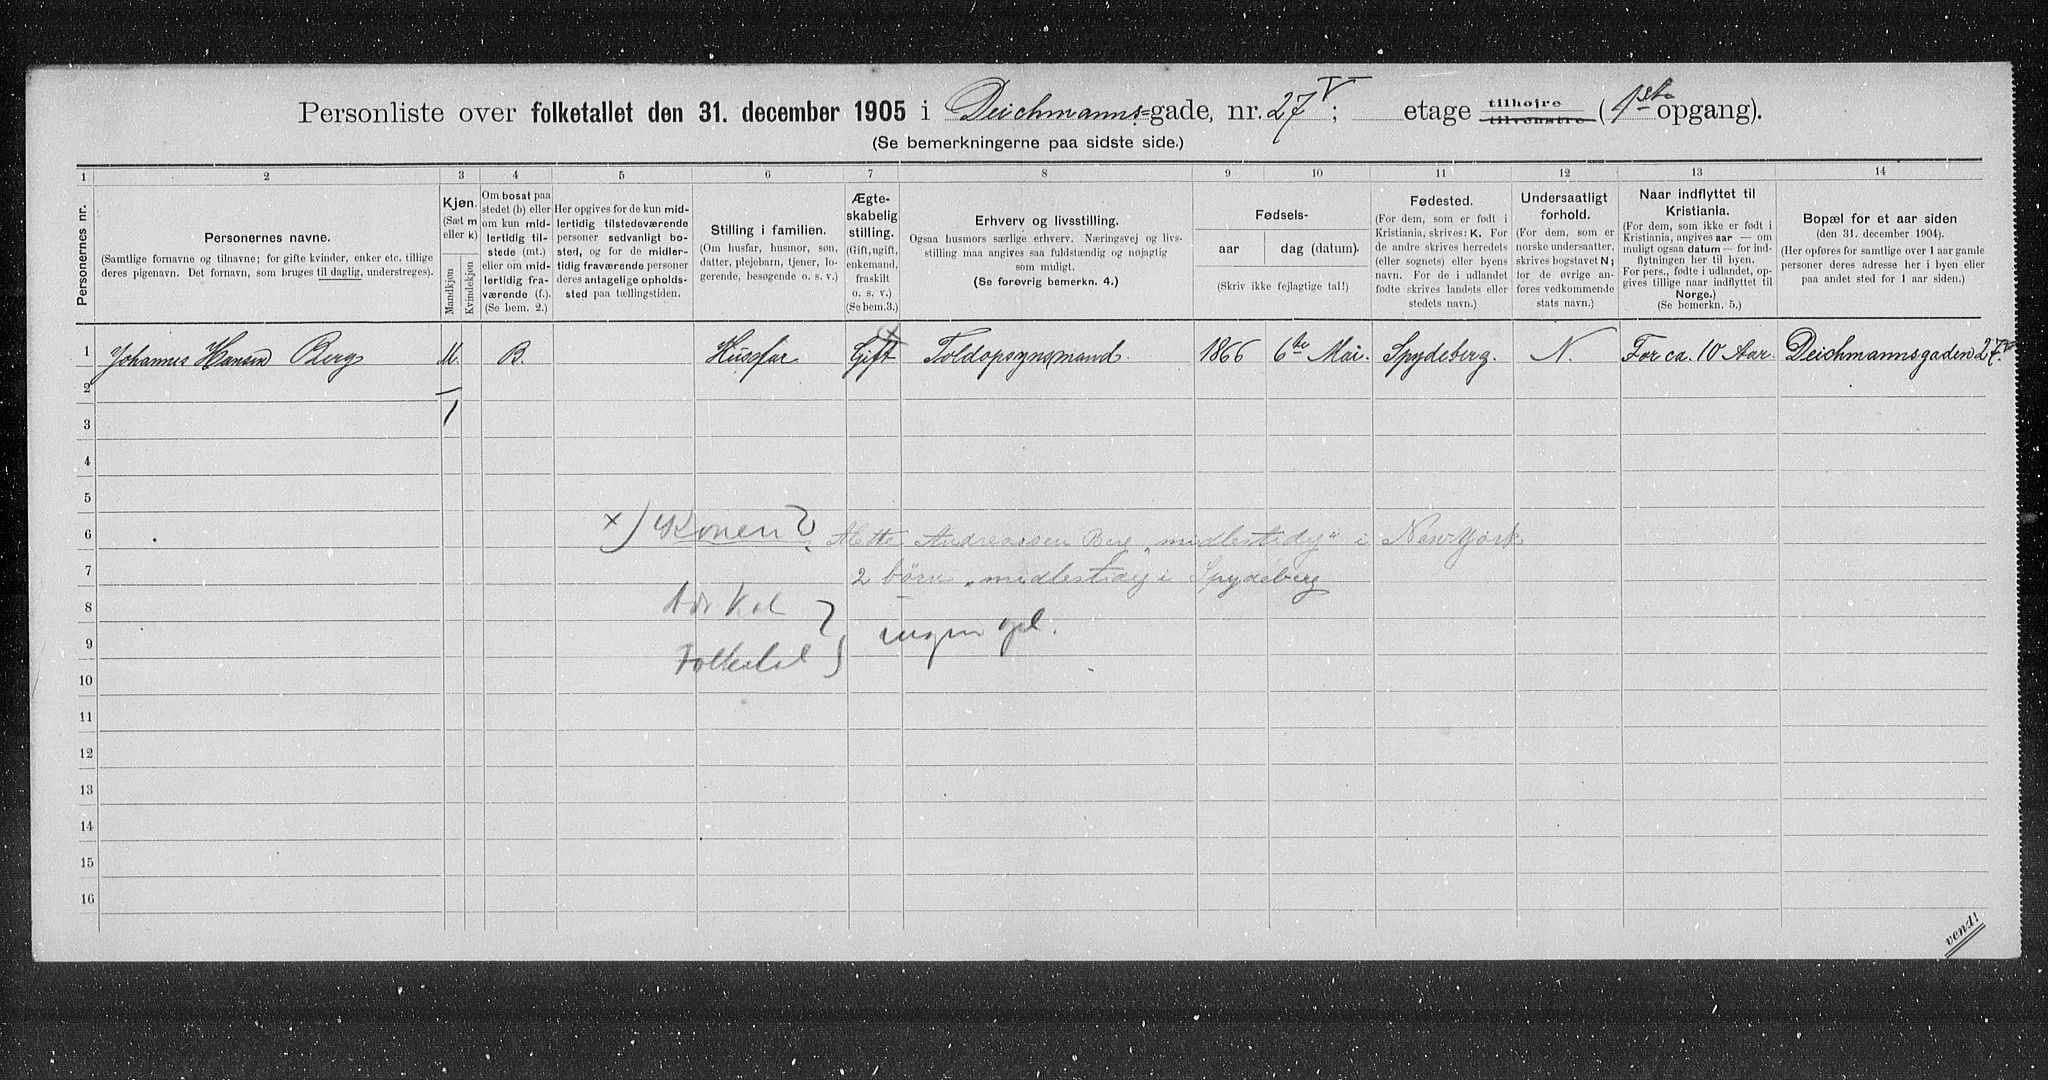 Personliste over folketallet den 31. december 1905 i Deichmanns=gade, nr. 27 V; etage tilhøjre tilvenstre (1ste opgang).
(Se bemerkningerne paa sidste side.)
1 2 3 4 5 6 7 8 9 10 11 12 13 14
Personernes nr.
Personernes navne.
(Samtlige fornavne og tilnavne; for gifte kvinder, enker etc. tillige
deres pigenavn. Det fornavn, som bruges til daglig, understreges).
Kjøn.
(Sæt m
eller k)
Mandkjøn
Kvindekjøn
Om bosat paa
stedet (b) eller
om kun mid-
lertidig til-
stede (mt.)
eller om mid-
lertidig fra-
værende (f.).
(Se bem. 2.)
Her opgives for de kun mid-
lertidig tilstedeværende
personer sedvanlig bo-
sted, og for de midler-
tidig fraværende personer
deres antagelige opholds-
sted paa tællingstiden.
Stilling i familien.
(Om husfar, husmor, søn,
datter, plejebarn, tjener, lo-
gerende, besøgende o. s. v.)
Ægte-
skabelig
stilling.
(Gift, ugift,
enkemand,
fraskilt
o. s. v.)
(Se bem. 3.)
Erhverv og livsstilling.
Ogsaa husmors særlige erhverv. Næringsvej og livs-
stilling maa angives saa fuldstændig og nøjagtig
som muligt.
(Se forøvrig bemerkn. 4.)
Fødsels-
aar dag (datum).
(Skriv ikke fejlagtige tal!)
Fødested.
(For dem, som er født i
Kristiania, skrives: K. For
de andre skrives herredets
(eller sognets) eller byens
navn. For de i udlandet
fødte skrives landets eller
stedets navn.)
Undersaatligt
forhold.
(For dem, som er
norske undersaatter,
skrives bogstavet N;
for de øvrige an-
føres vedkommende
stats navn.)
Naar indflyttet til
Kristiania.
(For dem, som ikke er født i
Kristiania, angives aar — om
muligt ogsaa datum — for ind-
flytningen her til byen.
For pers., fødte i udlandet, op-
gives tillige naar indflyttet til
Norge.)
(Se bemerkn. 5.)
Bopæl for et aar siden
(den 31. december 1904).
(Her opføres for samtlige over 1 aar gamle
personer deres adresse her i byen eller
paa andet sted for 1 aar siden.)
1 Johannes Hansen Berg M. B. Husfar Gift x Toldopsynsmand. 1866 6te Mai. Spydeberg. N. For ca. 10 Aar. Deichmannsgaden 27 V
2
3 1
4
5
6 x) Konen? Mette Andreassen Berg „midlestidig“ i New York
7 2 børn „midlestidig i Spydeberg
8
9 Folketal ingen opl.
10
11
12
13
14
15
16
vend!